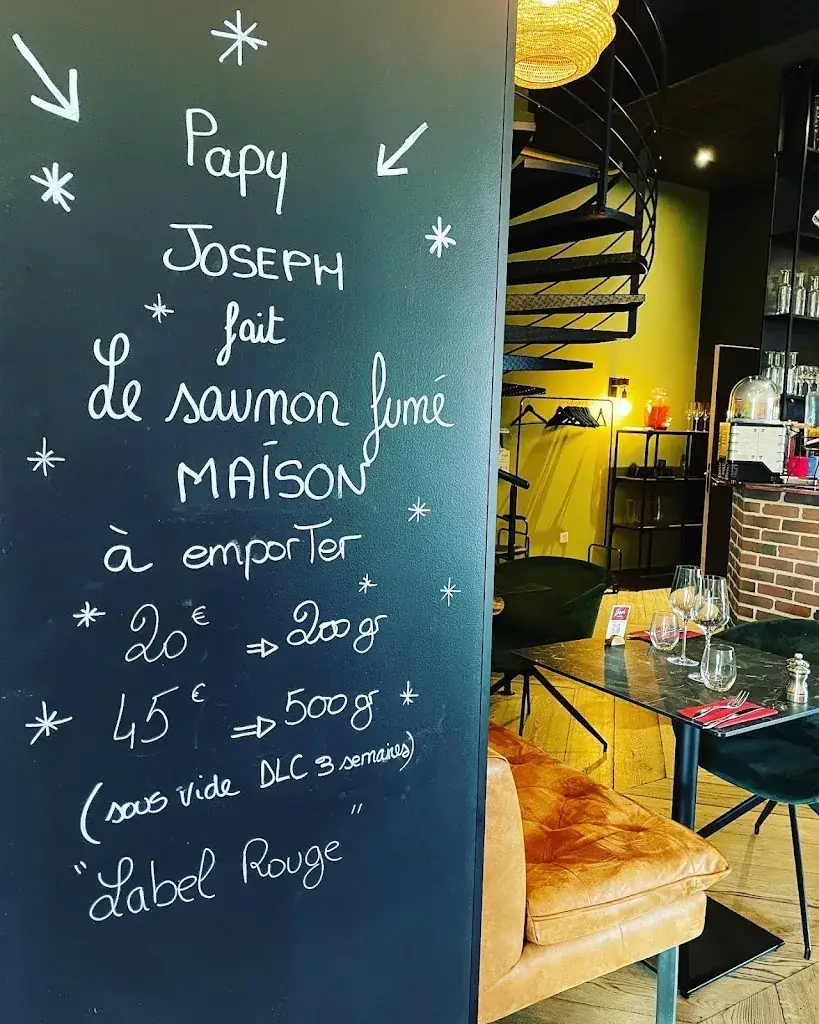 Papy
JOSEPH
fait
Le saumon fumé
MAISON
à emporter
20€ ⇒ 200 gr
45€ ⇒ 500 gr
(sous vide DLC 3 semaines)
"Label Rouge"